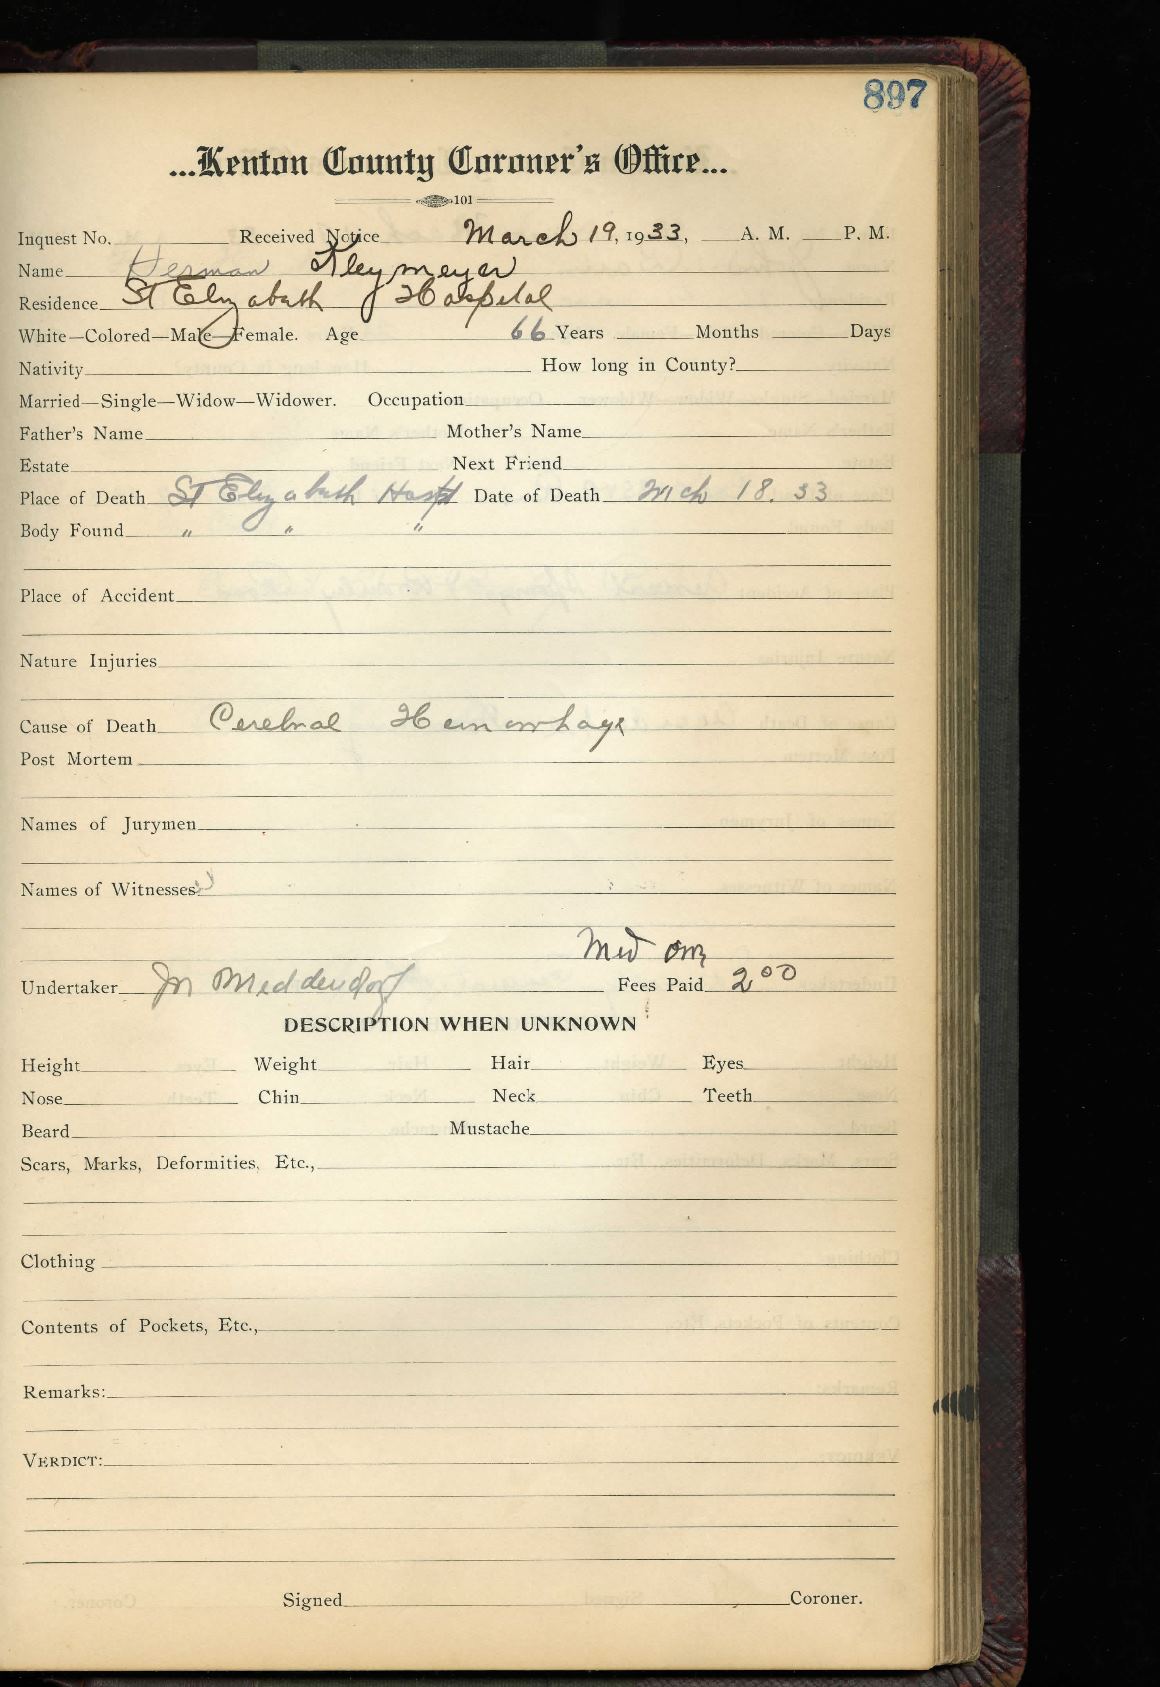 897
...Kenton County Coroner's Office...
101
Inquest No. Received Notice March 19, 1933, A. M. P. M.
Name Herman Kleymeyer
Residence St Elizabeth Hospital
White—Colored—Male—Female. Age 66 Years Months Days
Nativity How long in County?
Married—Single—Widow—Widower. Occupation
Father's Name Mother's Name
Estate Next Friend
Place of Death St Elizabeth Hospt Date of Death Mch 18. 33
Body Found " " "
Place of Accident
Nature Injuries
Cause of Death Cerebral Hemorrhage
Post Mortem
Names of Jurymen
Names of Witnesses
Med
Undertaker Meddendorf Fees Paid 2 00
DESCRIPTION WHEN UNKNOWN
Height Weight Hair Eyes
Nose Chin Neck Teeth
Beard Mustache
Scars, Marks, Deformities, Etc.,
Clothing
Contents of Pockets, Etc.,
Remarks:
VERDICT:
Signed Coroner.